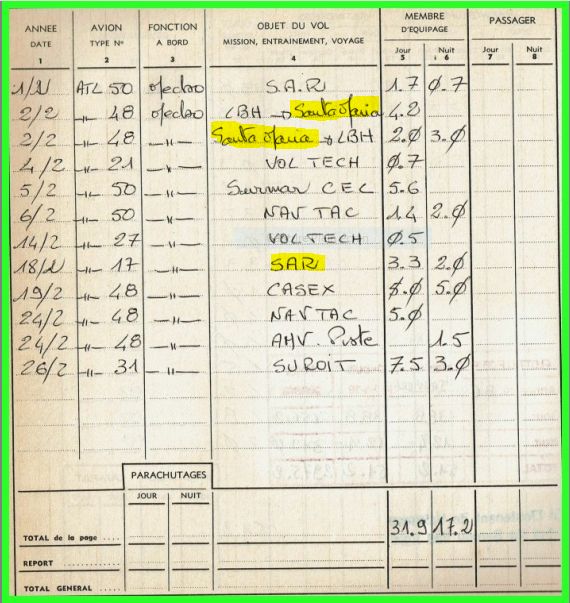 ANNEE AVION FONCTION OBJET DU VOL MEMBRE D'EQUIPAGE PASSAGER
DATE TYPE No A BORD MISSION, ENTRAINEMENT, VOYAGE Jour Nuit Jour Nuit
1 2 3 4 5 6 7 8
1/2 ATL 50 S.A.R 1.7 0.7
2/2 -"- 48 LBH → Santa Maria 4.2
2/2 -"- 48 -"- Santa Maria → LBH 2.0 3.0
4/2 -"- 21 -"- VOL TECH 0.7
5/2 -"- 50 -"- Surmar CEL 5.6
6/2 -"- 50 -"- NAV TAC 1.4 2.0
14/2 -"- 27 -"- VOL TECH 0.5
18/2 -"- 17 -"- SAR 3.3 2.0
19/2 -"- 48 -"- CASEX 5.0
24/2 -"- 48 -"- NAV TAC 5.0
24/2 -"- 48 -"- AMV. Piste 1.5
26/2 -"- 31 -"- SUROIT 7.5 3.0
PARACHUTAGES
JOUR NUIT
TOTAL de la page .... 31.9 17.2
REPORT
TOTAL GENERAL